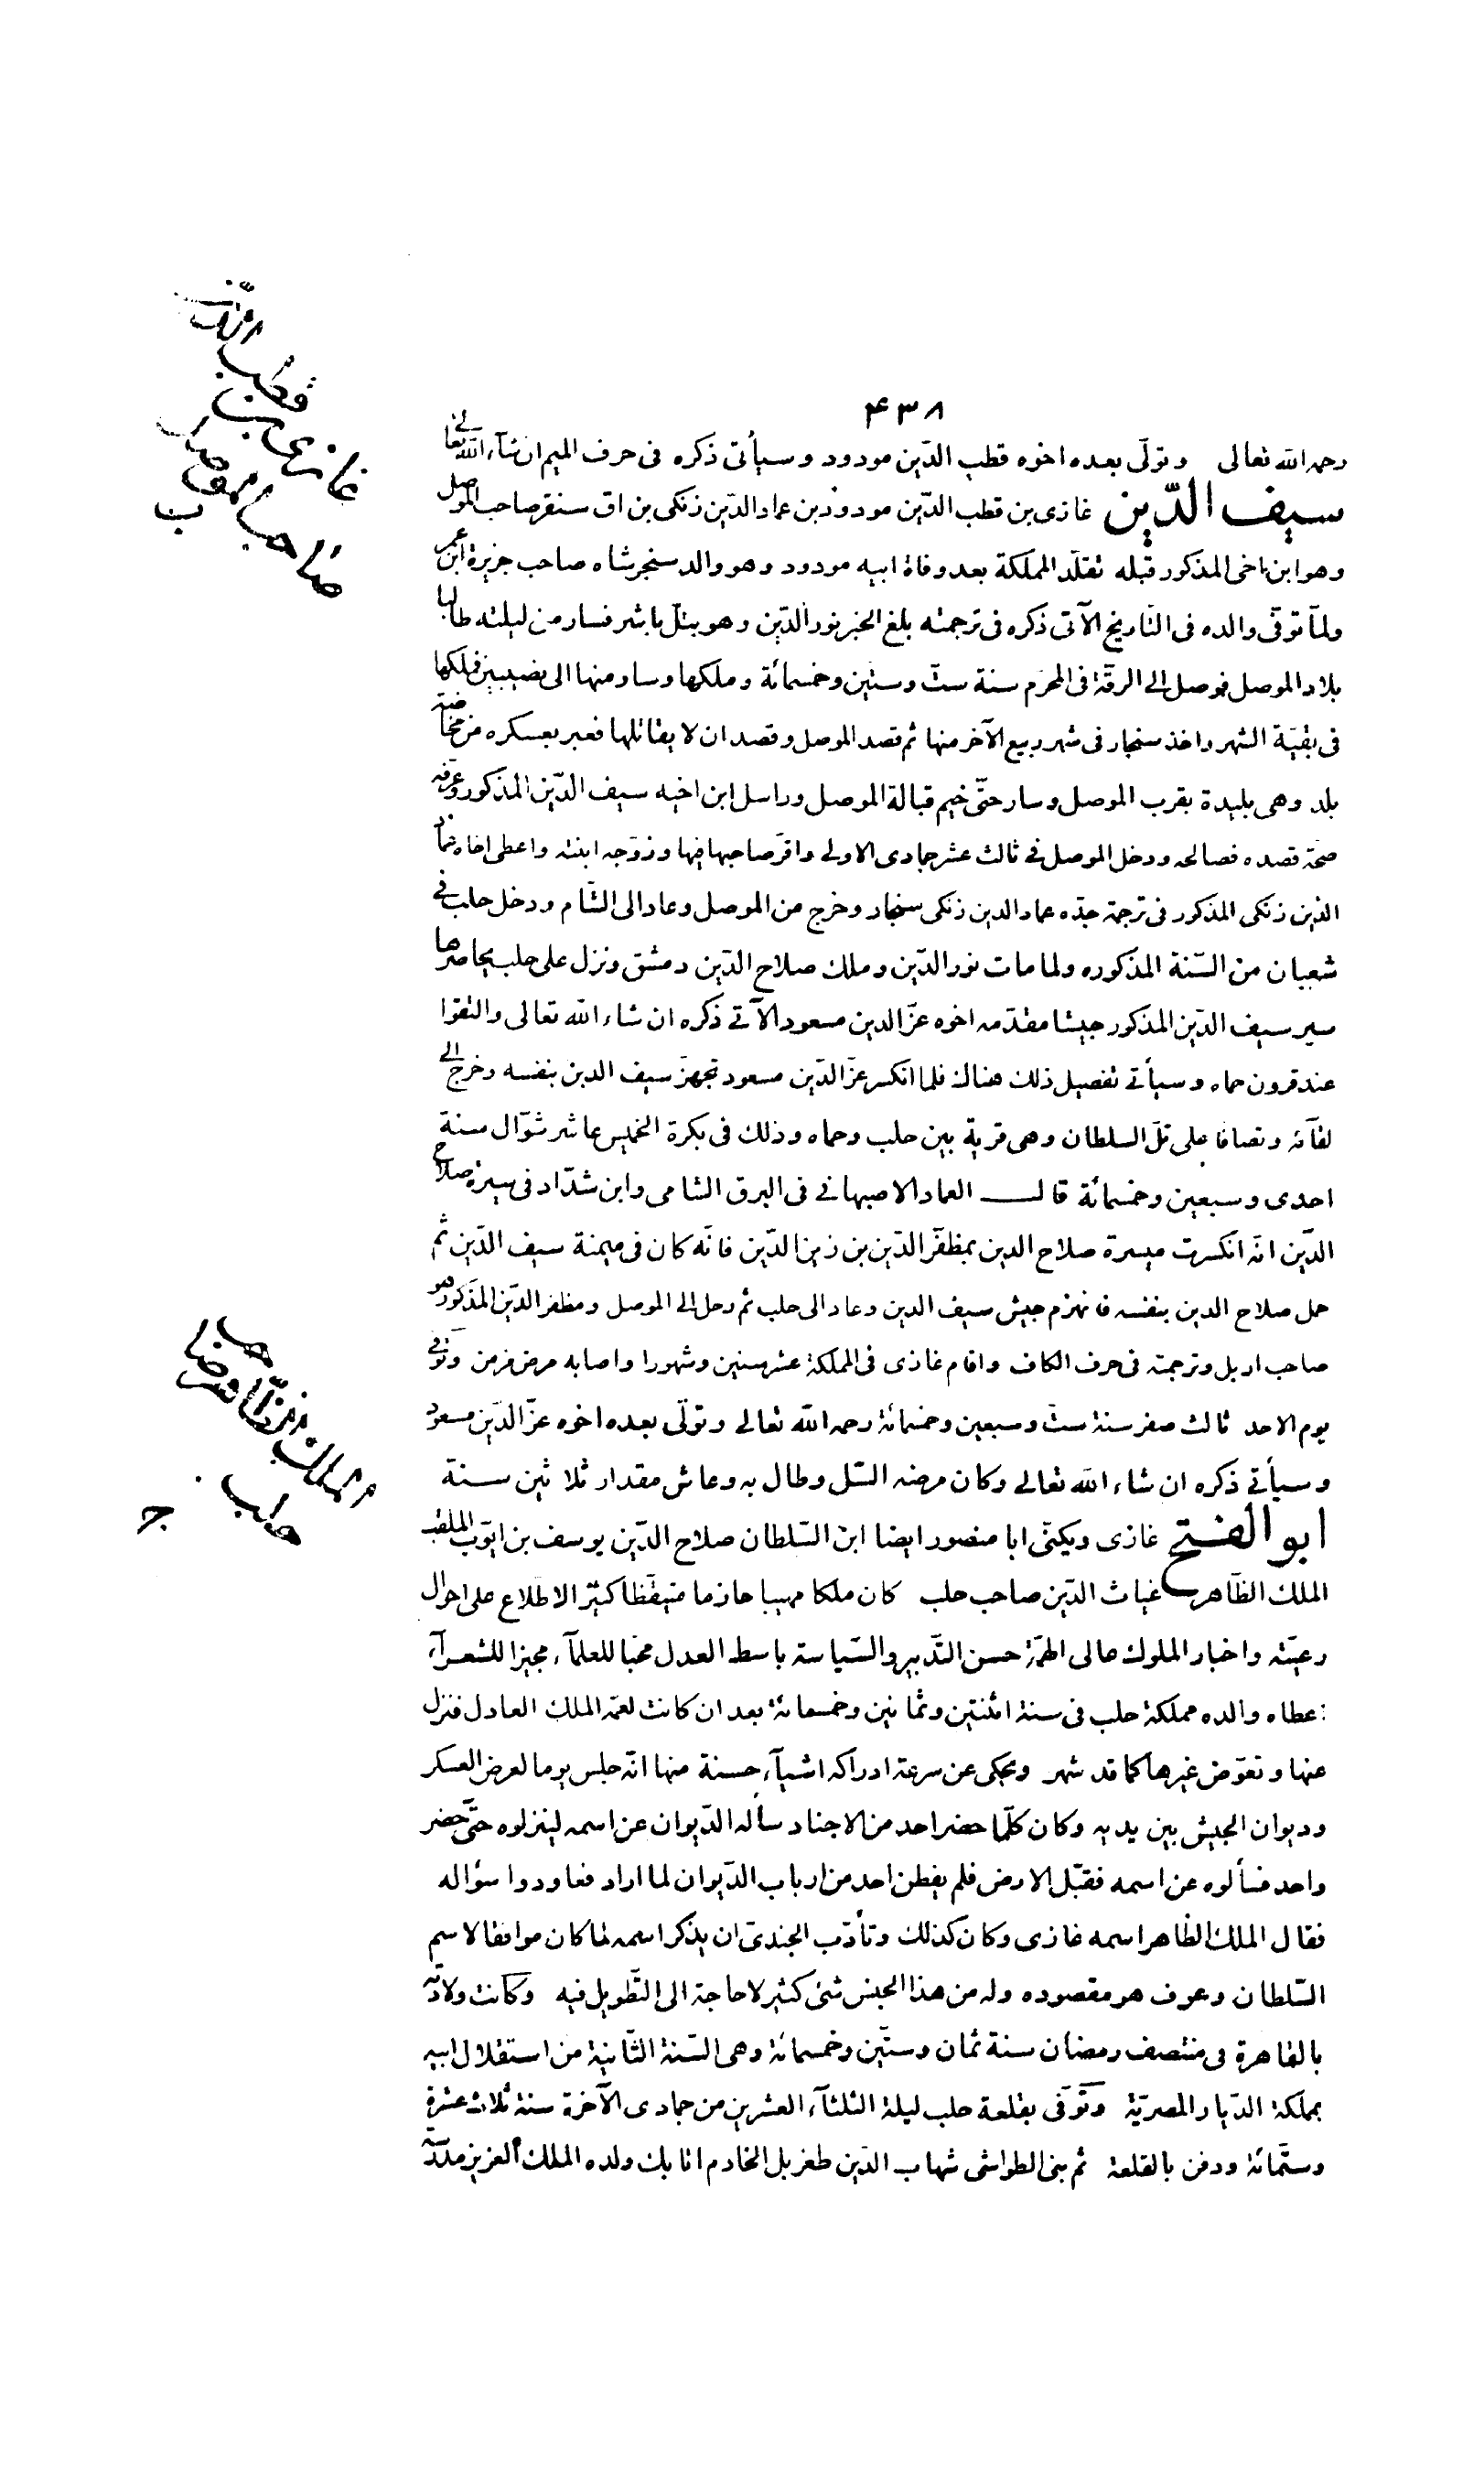 ۴۳۸
رحمه الله تعالى وتولّى بعده اخوه قطب الدّين مودود وسيأتى ذكره فى حرف الميم ان شآء الله تعالى
سيف الدّين غازى بن قطب الدّين مودود بن عماد الدّين زنكى بن اق سنقر صاحب الموصل
وهو ابن اخى المذكور قبله تقلّد المملكة بعد وفاة ابيه مودود وهو والد سنجر شاه صاحب جزيرة ابن عمر
ولمّا توفّى والده فى التّاريخ الآتى ذكره فى ترجمته بلغ الخبر نور الدّين وهو بتلّ باشر فسار من ليلته طالبا
بلاد الموصل فوصل الى الرقّة فى المحرّم سنة ستّ وستّين وخمسمائة وملكها وسار منها الى نصيبين فملكها
فى بقيّة الشهر واخذ سنجار فى شهر ربيع الآخر منها ثم قصد الموصل وقصد ان لا يقاتلها فعبر بعسكره من مخاضة
بلد وهى بليدة بقرب الموصل وسار حتّى خيم قبالة الموصل وراسل ابن اخيه سيف الدّين المذكور وعرّفه
صحّة قصده فصالحه ودخل الموصل فى ثالث عشر جمادى الاولى واقرّ صاحبها فيها وزوّجه ابنته واعطى اخاه عماد
الدّين زنكى المذكور فى ترجمة جدّه عماد الدين زنكى سنجار وخرج من الموصل وعاد الى الشّام ودخل حلب فى
شعبان من السّنة المذكوره ولما مات نور الدّين وملك صلاح الدّين دمشق ونزل على حلب يحاصرها
سير سيف الدّين المذكور جيشا مقدّمه اخوه عزّ الدين مسعود الآتى ذكره ان شاء الله تعالى والتقوا
عند قرون حماه وسيأتى تفصيل ذلك هناك فلما انكسر عزّ الدّين مسعود تجهزّ سيف الدين بنفسه وخرج الى
لقآئه وتصافا على تلّ السلطان وهى قرية بين حلب وحماه وذلك فى بكرة الخميس عاشر شوّال سنة
احدى وسبعين وخمسمائة قال العماد الاصبهانى فى البرق الشامى وابن شدّاد فى سيرة صلاح
الدّين انه انكسرت ميسرة صلاح الدين بمظفّر الدّين بن زين الدّين فانّه كان فى ميمنة سيف الدّين ثم
حمل صلاح الدين بنفسه فانهزم جيش سيف الدين وعاد الى حلب ثم رحل الى الموصل ومظفر الدّين المذكور هو
صاحب اربل وترجمته فى حرف الكاف واقام غازى فى المملكة عشر سنين وشهورا واصابه مرض مزمن وتوفّى
يوم الاحد ثالث صفر سنة ستّ وسبعين وخمسمائة رحمه الله تعالى وتولّى بعده اخوه عزّ الدّين مسعود
وسيأتى ذكره ان شاء الله تعالى وكان مرضه السّل وطال به وعاش مقدار ثلاثين سنة
ابو الفتح غازى ويكنى ابا منصور ايضا ابن السّلطان صلاح الدّين يوسف بن ايّوب الملقب
الملك الظّاهر غياث الدّين صاحب حلب كان ملكا مهيبا حازما متيقّظا كثير الاطّلاع على احوال
رعيّته واخبار الملوك عالى الهمّة حسن التّدبير والسّياسة باسط العدل محبّا للعلمآء مجيزا للشعرآء
اعطاه والده مملكة حلب فى سنة اثنتين وثمانين وخمسمائة بعد ان كانت لعمّه الملك العادل فنزل
عنها وتعوّض غيرها كما قد شهر ويحكى عن سرعة ادراكه اشيآء حسنة منها انّه جلس يوما لعرض العسكر
وديوان الجيش بين يديه وكان كلّما حضر احد من الاجناد سأله الدّيوان عن اسمه لينزلوه حتّى حضر
واحد فسألوه عن اسمه فقبّل الارض فلم يفطن احد من ارباب الدّيوان لما اراد فعاودوا سؤاله
فقال الملك الظاهر اسمه غازى وكان كذلك وتأدّب الجندىّ ان يذكر اسمه لما كان موافقا لاسم
السّلطان وعرف هو مقصوده وله من هذا الجنس شئ كثير لا حاجة الى التّطويل فيه وكانت ولادته
بالقاهرة فى منتصف رمضان سنة ثمان وستّين وخمسمائة وهى السّنة الثّانية من استقلال ابيه
بمملكة الدّيار المصريّة وتوفّى بقلعة حلب ليلة الثلثآء العشرين من جمادى الآخرة سنة ثلاث عشرة
وستّمائة ودفن بالقلعة ثم بنى الطواشى شهاب الدّين طغربل الخادم اتابك ولده الملك العزيز مدرسة
غازى بن
قطب الدّين
صاحب الموصل
ب
الملك الظّاهر
صاحب
حلب